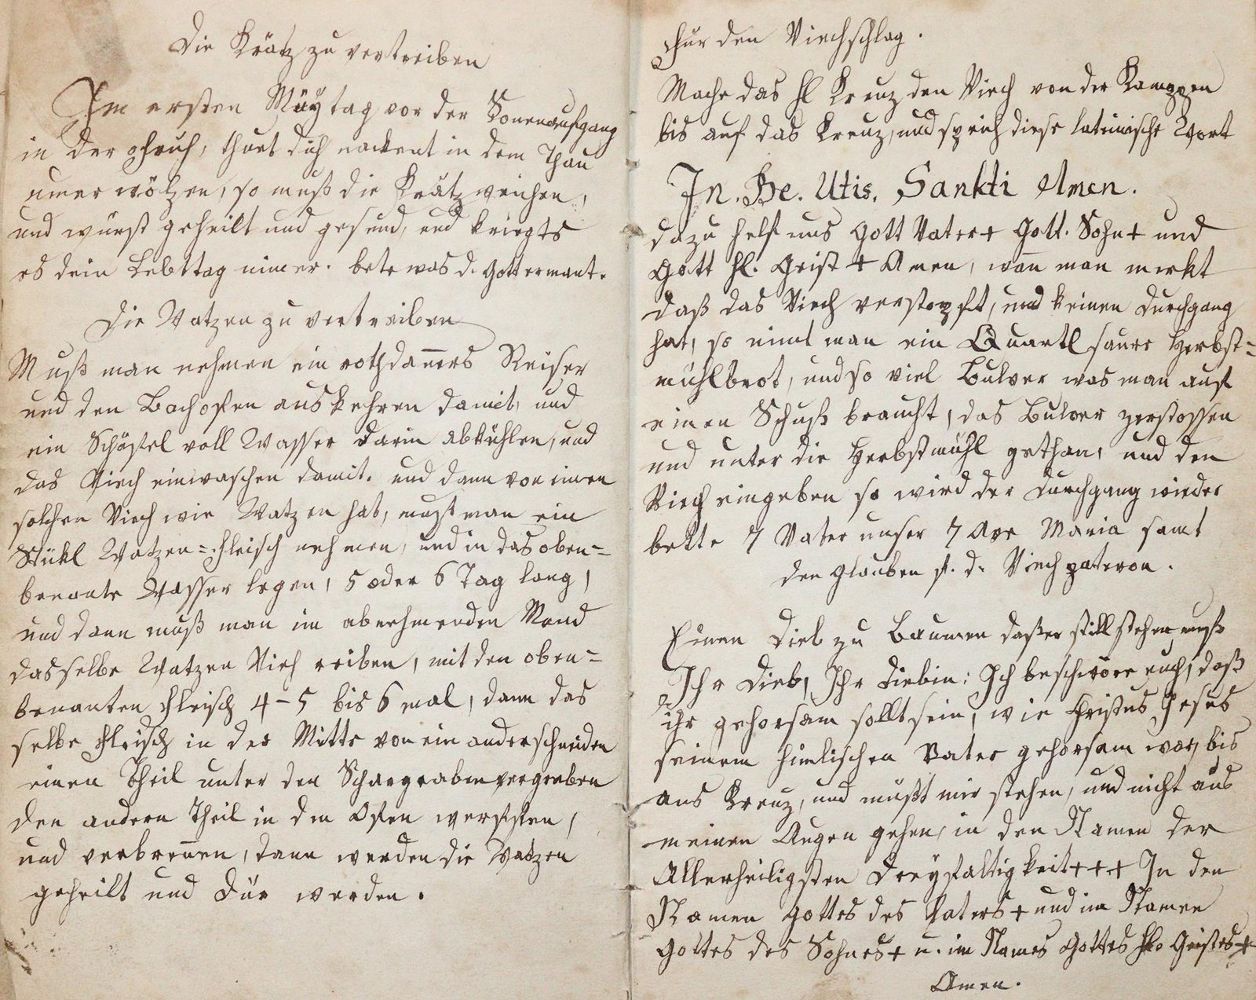 Die Krätz zu vertreiben
Am ersten Maÿtag vor der Sonenaufgang
in der Fruh, thuet dich nackent in dem Thau
umer wölzen, so muß die Krätz weichen,
und würst geheilt und gesund, und kriegts
es dein Lebttag nimer. bete was d. Gott ermant.
Die Watzen zu vertreiben
Muß man nehmen ein rothdaners Reiser
und den Bachofen auskehren damit, und
ein Schäffel voll Wasser darin abkühlen, und
das Viech einwaschen damit. und dann von einen
solchen Viech wie Watzen hat, muß man ein
Stükl Watzen=Fleisch nehmen, und in das oben=
benante Wasser legen, 5 oder 6 Tag lang,
und dann muß man im abnehmenden Mond
dasselbe Watzen Viech reiben, mit den oben=
benanten Fleisch 4-5 bis 6 mal, dann das
selbe Fleisch in der Mitte von ein ander schneiden
einen Theil unter den Schargraben vergraben
den andern Theil in den Ofen werffen,
und verbrennen, dann werden die Watzen
geheilt und Dür werden.
Für den Viechschlag.
Mache das hl Kreuz den Viech von der Kamppen
bis auf das Kreuz, und sprich diese lateinische Wort
In. Be. Utis. Sankti Amen.
dazu helf uns Gott Vater+ Gott. Sohn+ und
Gott hl. Geist + Amen, wan man merkt
daß das Viech verstopft, und keinen Durchgang
hat, so nimt man ein Quartl saure Herbst=
mühlbrot, und so viel Bulver was man auf
einen Schuß braucht, das Bulver zerstossen
und unter die Herbstmühl gethan, und den
Viech eingeben so wird der Durchgang wieder
bette 7 Vater unser 7 Ave Maria samt
den Glauben f. d. Viech patron.
Einen Dieb zu Baumen daß er still stehen muß
Ihr Dieb, Ihr Diebin: Ich beschwöre euch, daß
ihr gehorsam sollt sein, wie Christus Jesus
seinem himlischen Vater gehorsam war, bis
ans Kreuz, und müßt mir stehen, und nicht aus
meinen Augen gehen, in den Namen der
Allerheiligsten Dreÿfaltigkeit+++ In den
Namen Gottes des Vaters+ und im Namen
Gottes des Sohnes+ u. im Names Gottes hl. Geistes+
Amen.